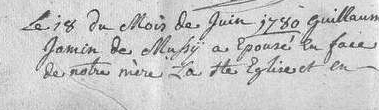 Le 18 du Mois de Juin 1780 Guillaum
Jamin de Mussÿ a Epousé En face
de notre mère La Ste Eglise et en